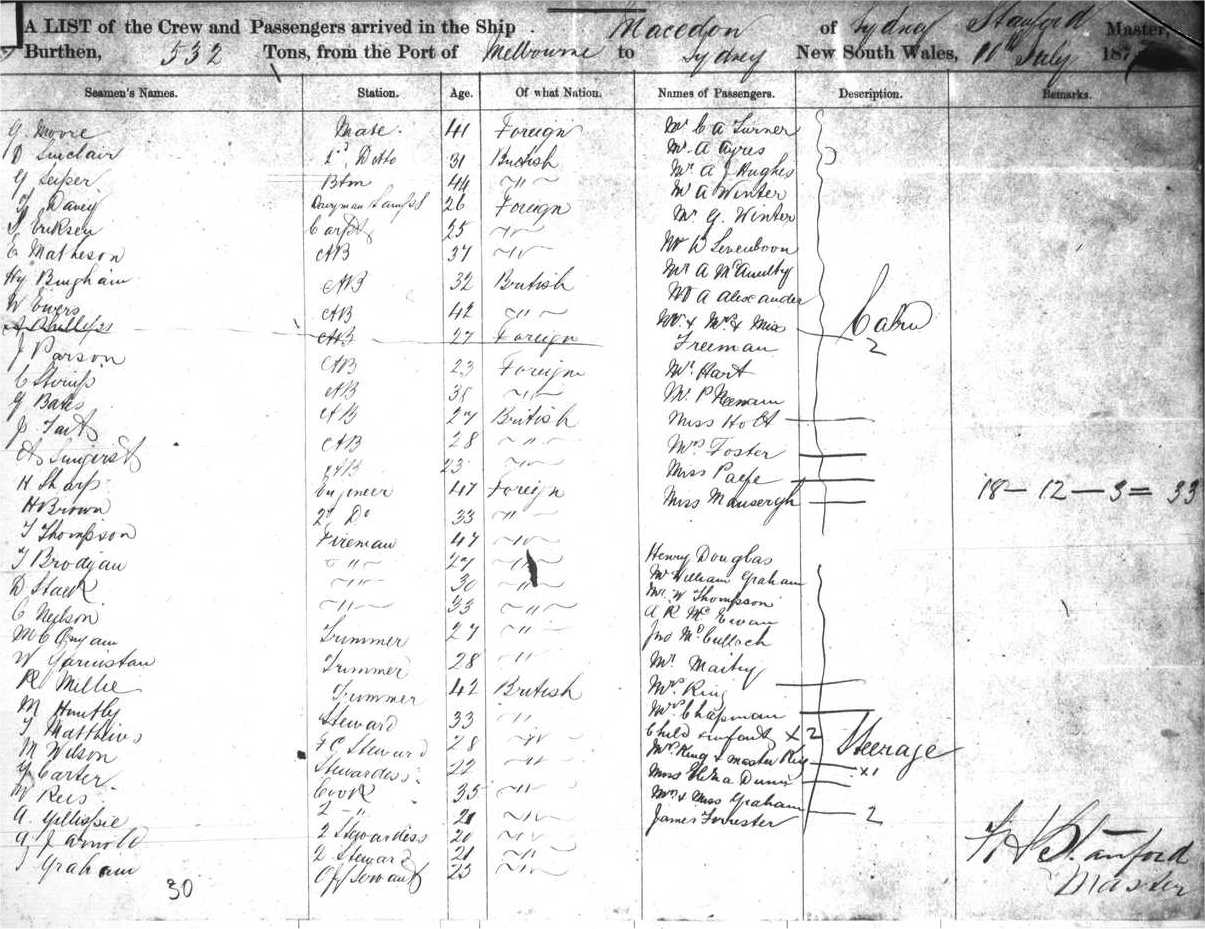 A LIST of the Crew and Passengers arrived in the Ship Macedon of Sydney Stanford Master,
Burthen, 532 Tons, from the Port of Melbourne to Sydney New South Wales, July 187
Seamen's Names. Station. Age. Of what Nation. Names of Passengers. Description. Remarks.
G. Moore Mate. 41 Foreign Mr C A Turner
D Sinclair 2nd Ditto 31 British Mr A Ayres
G Leiper Btm 44 " Mr A J Hughes
Davey Lamps 26 Foreign Mr A Winter
Eriksen Carptr 25 " Mr G. Winter
E Matheson AB 37 "
Hy Bingham AB 32 British Mr A McAnulty
W Ewers AB 42 " A Alexander
A Phillips AB 27 Foreign Mr & Mrs & Miss Cabin
J Parson AB 23 Foreign Freeman 2
C AB " Mr Hart
G Bates AB 27 British Mr P
J Tait AB 28 " Miss Holt
AB 23 " Mrs Foster
H Sharp Engineer 47 Foreign Miss
H Brown 2nd Do 33 " Miss Mansergh 18 - 12 - 3 = 33
T Thompson Fireman 47 "
T " 27 " Henry Douglas
D Stack " 30 " Mr William Graham
C Neilson " 33 " Mr W Thompson
Trimmer 27 " A R McEwan
W Trimmer 28 " Jno McCulloch
R Millie Trimmer 42 British Mr
M Huntly Steward 33 " Mrs King
T Matthews F C Steward 28 " Mrs Chapman
M Wilson Stewardess 22 " Child infant x 2 Steerage
G Carter Cook 35 " Mrs King & Master King x1
W Rees 2 " 21 " Miss Dunn
A. Gillespie 2 Stewardess 20 " Mrs & Miss Graham 2
G J Arnold 2 Steward 21 " James Forrester
T Graham Off Servant 23 "
30
Stanford
Master